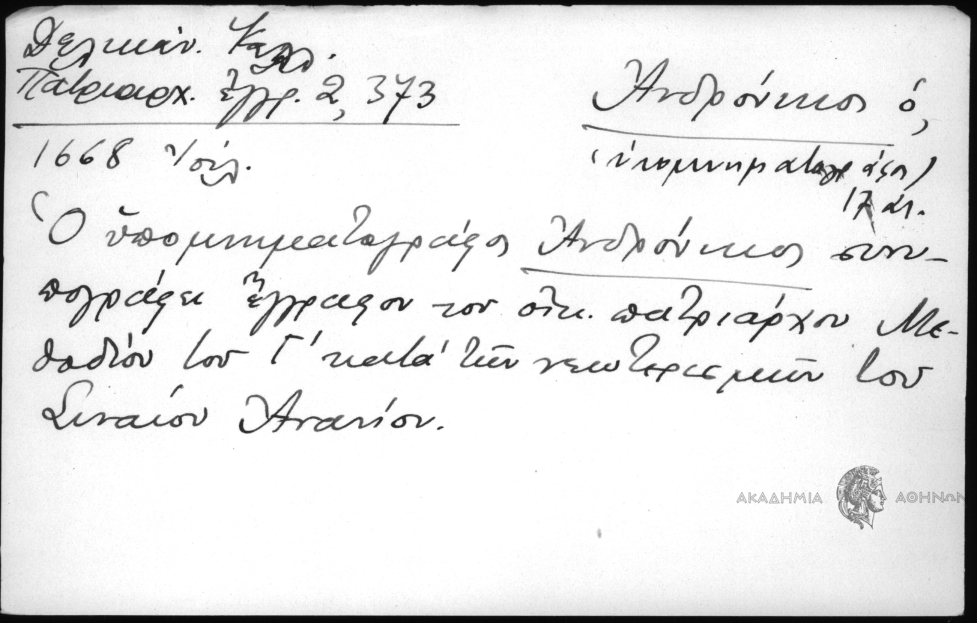 Δελικάν. Καλλ.
Πατριαρχ. ἔγγρ. 2, 373
Ἀνδρόνικος ὁ,
(ὑπομνηματογράφος)
17 αἰ.
1668 Ἰούλ.
Ὁ ὑπομνηματογράφος Ἀνδρόνικος συνυ-
πογράφει ἔγγραφον του οἰκ. πατριάρχου Με-
θοδίου του Γ' κατά τῶν νεωτερισμῶν του
Σιναίου Ἀνανίου.
ΑΚΑΔΗΜΙΑ ΑΘΗΝΩΝ